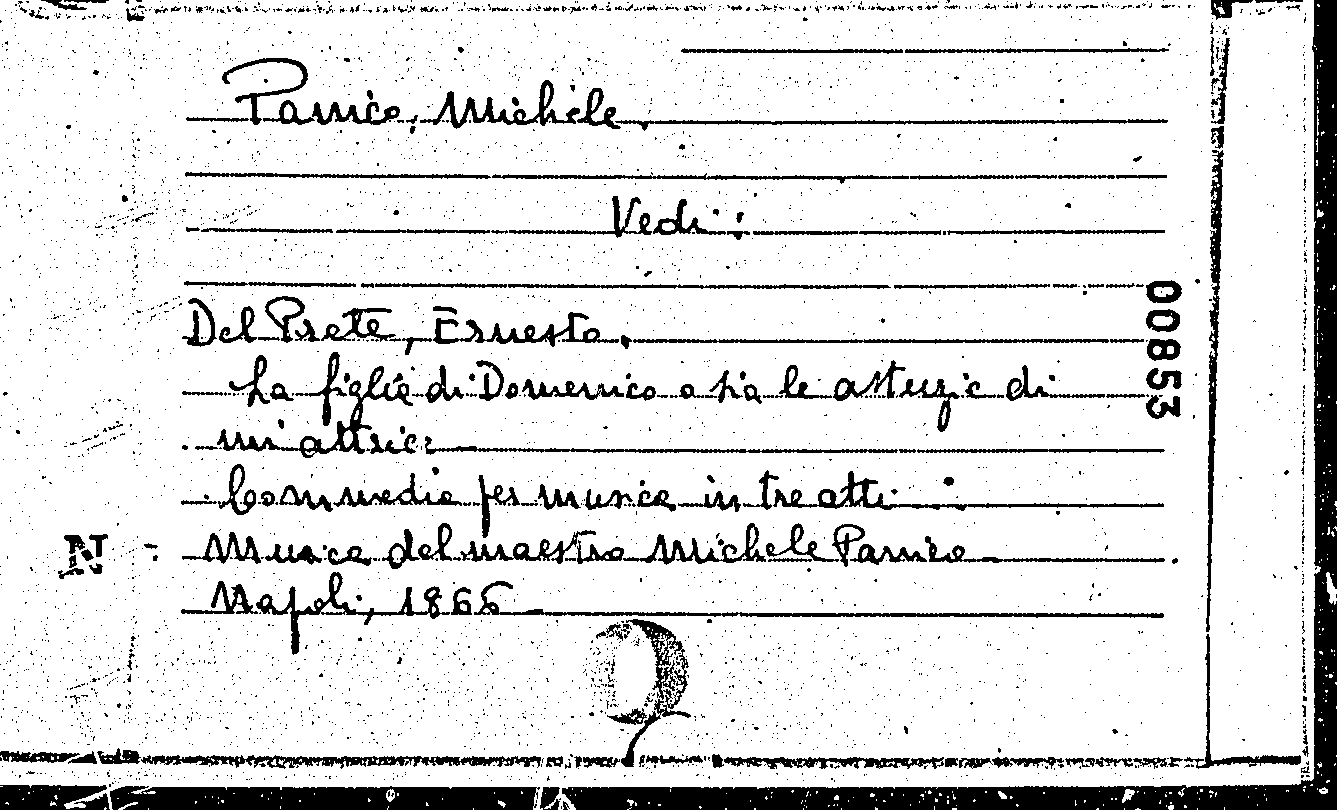 Panico, Michele.
Vedi:
Del Prete, Ernesto.
La figlia di Domenico o sia le astuzie di
un'attrice
Commedia per musica in tre atti
N - Musica del maestro Michele Panico
Napoli, 1866
00853